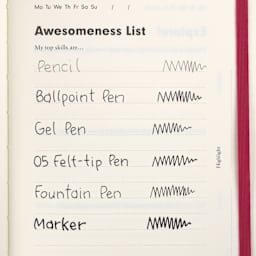 Mo Tu We Th Fr Sa Su / /
Awesomeness List
My top skills are...
Pencil
Ballpoint Pen
Gel Pen
05 Felt-tip Pen
Fountain Pen
Marker
Highlight